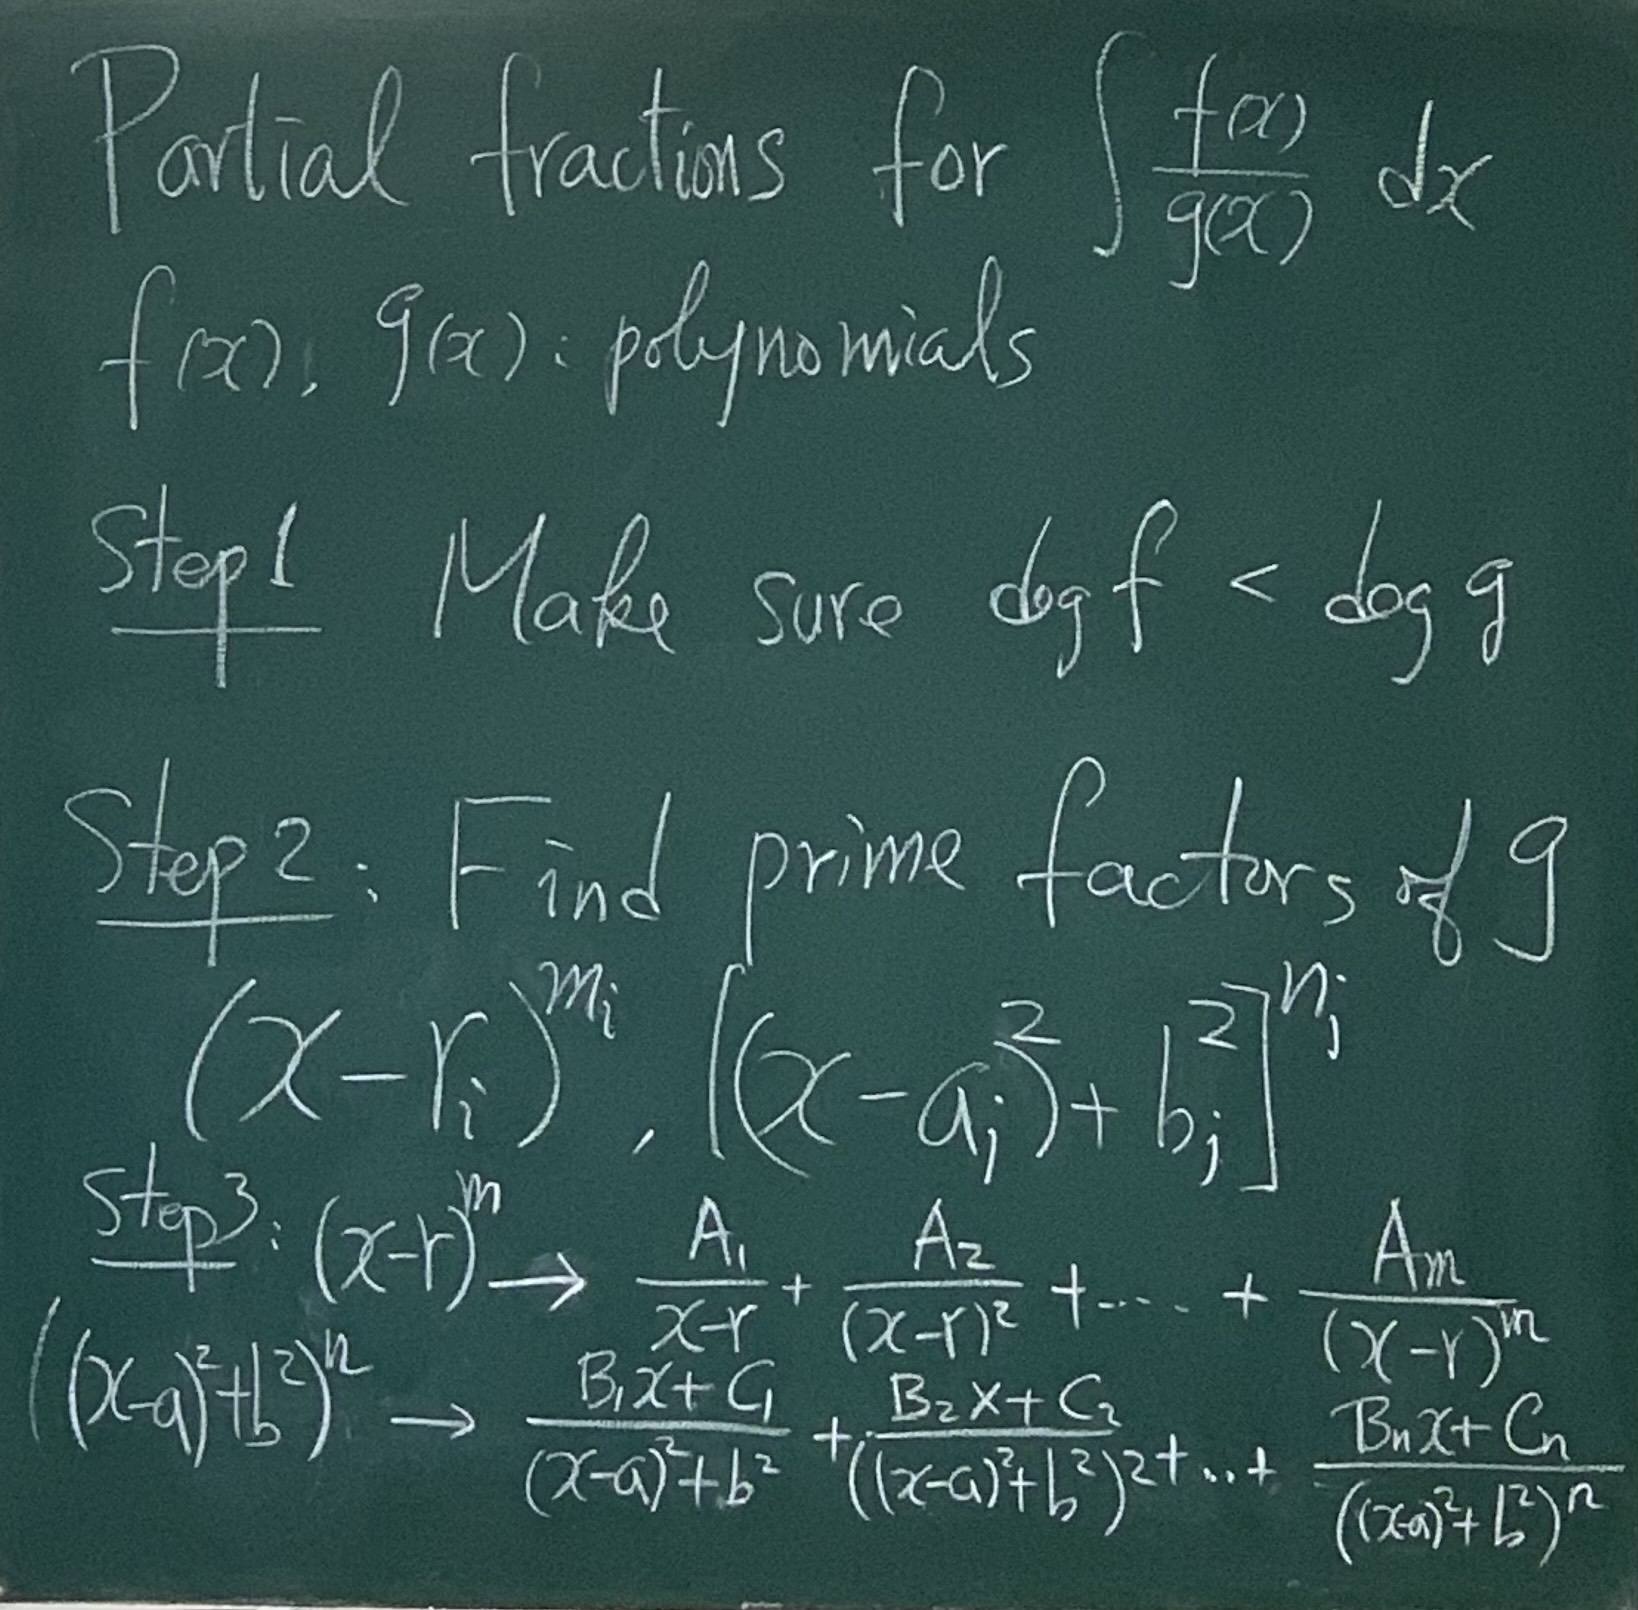 Partial fractions for ∫ f(x)/g(x) dx
f(x), g(x) : polynomials
Step1 Make sure deg f < deg g
Step2 : Find prime factors of g
(x-r_i)^{m_i} , [(x-a_j)^2 + b_j^2]^{n_j}
Step3 : (x-r)^m → A_1/(x-r) + A_2/(x-r)^2 + .... + A_m/(x-r)^m
((x-a)^2+b^2)^n → (B_1x+C_1)/((x-a)^2+b^2) + (B_2x+C_2)/((x-a)^2+b^2)^2 + ... + (B_nx+C_n)/((x-a)^2+b^2)^n